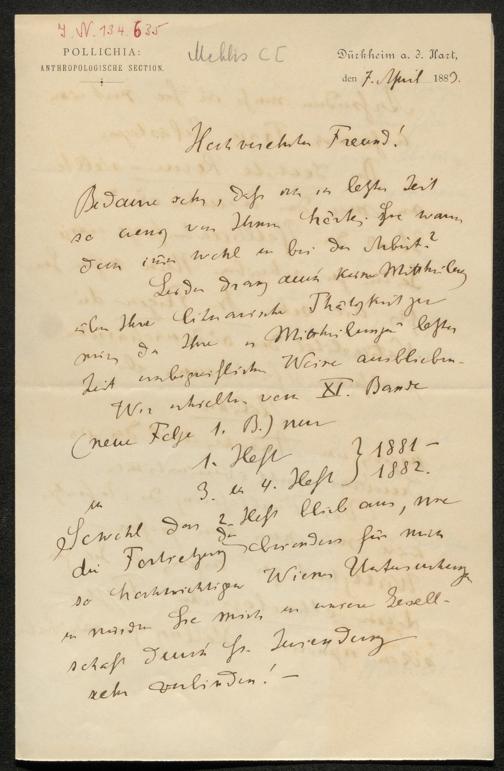 J. N. 134.635
POLLICHIA:
ANTHROPOLOGISCHE SECTION.
Mehlis C I
Dürkheim a. d. Hart,
den 7. April 1883.
Hochverehrter Freund!
Bedaure sehr, daß ich in letzter Zeit
so wenig von Ihnen hörte. Sie waren
denn immer wohl u bei der Arbeit?
Leider drang auch keine Mittheilung
über Ihre literarische Thätigkeit zu
mir, da Ihre Mittheilungen letzter
Zeit unbegreiflicher Weise ausblieben.
Wir erhielten vom XI. Bande
(neue Folge 1. B.) nur
1. Heft
3. u 4. Heft } 1881–1882.
Sowohl das 2. Heft blieb aus, wie
die Fortsetzung der besonders für mich
so hochwichtigen Wiener Untersuchung
u würden Sie mich u unsere Gesell-
schaft durch Zusendung
sehr verbinden! –